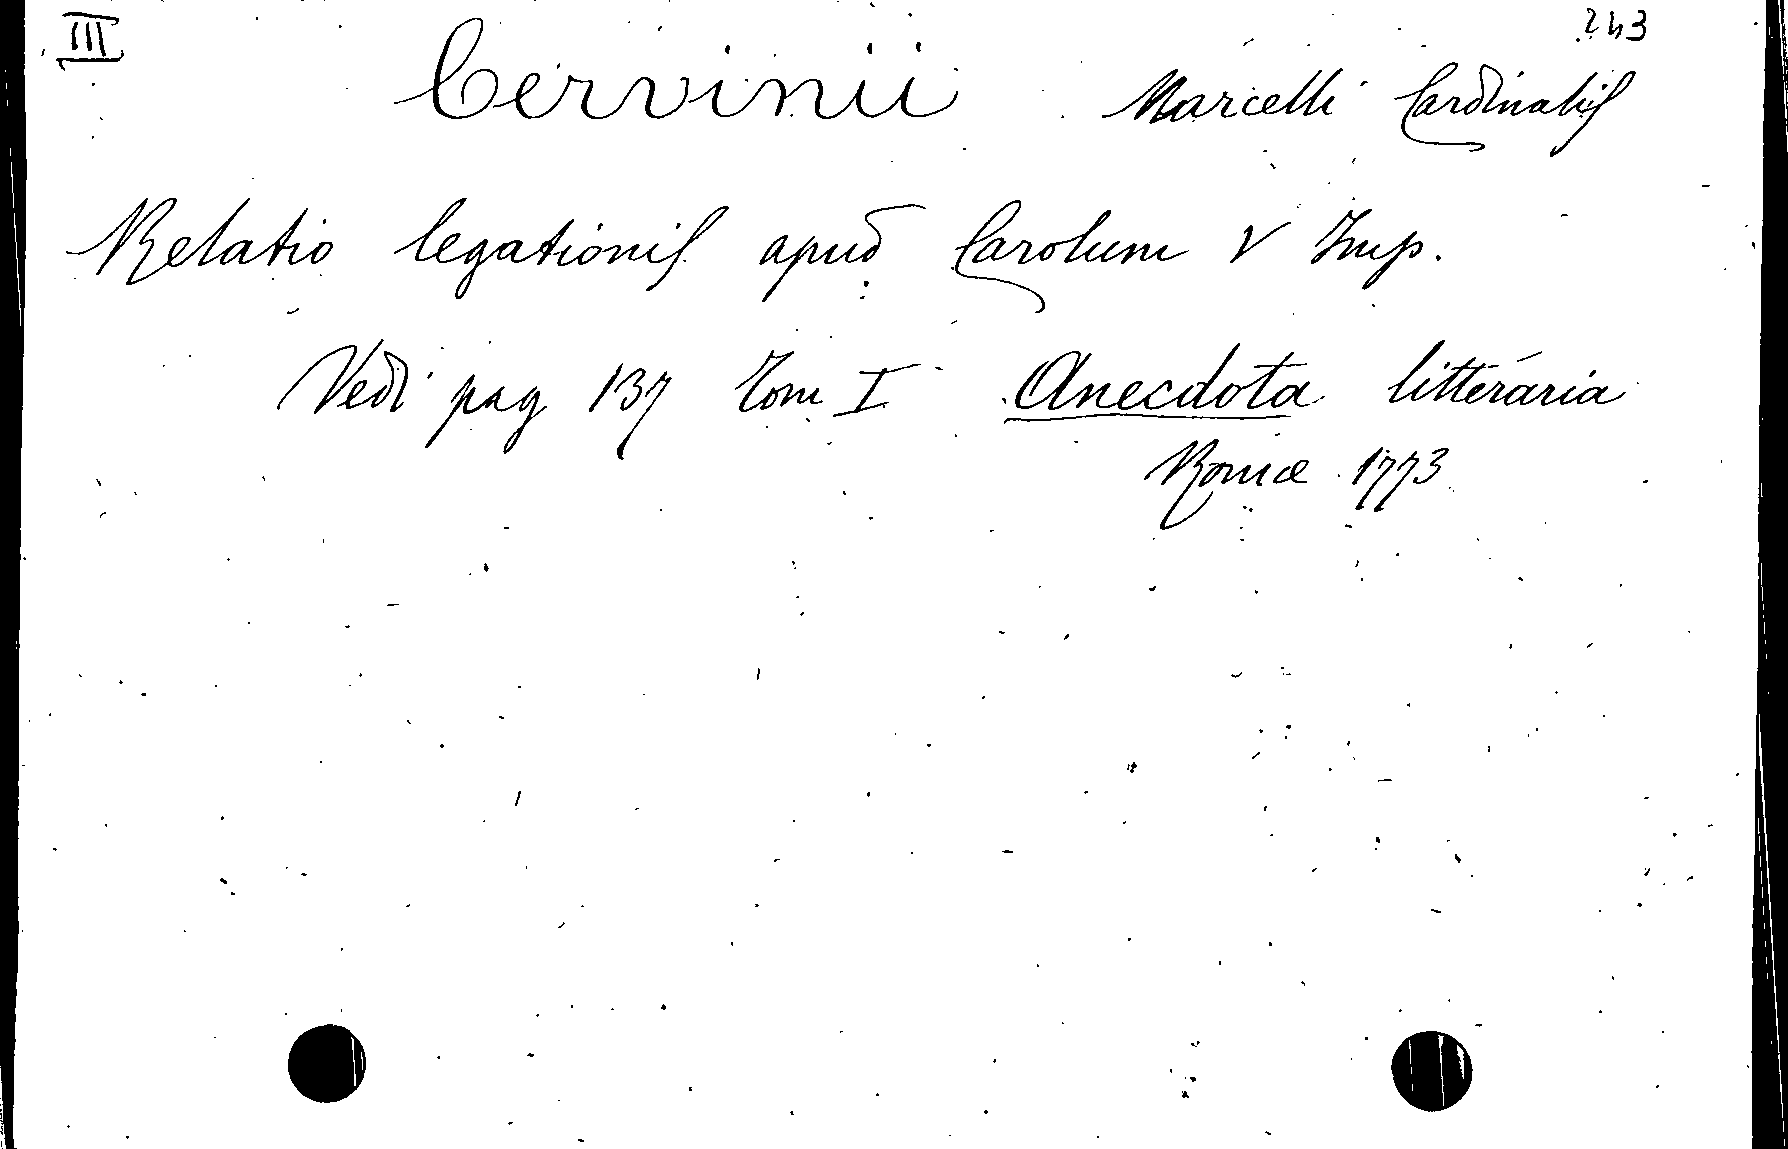 III 243
Cervinii Marcelli Cardinalis
Relatio legationis apud Carolum V Imp.
Vedi pag 137 Tom I Anecdota litteraria
Romæ 1773